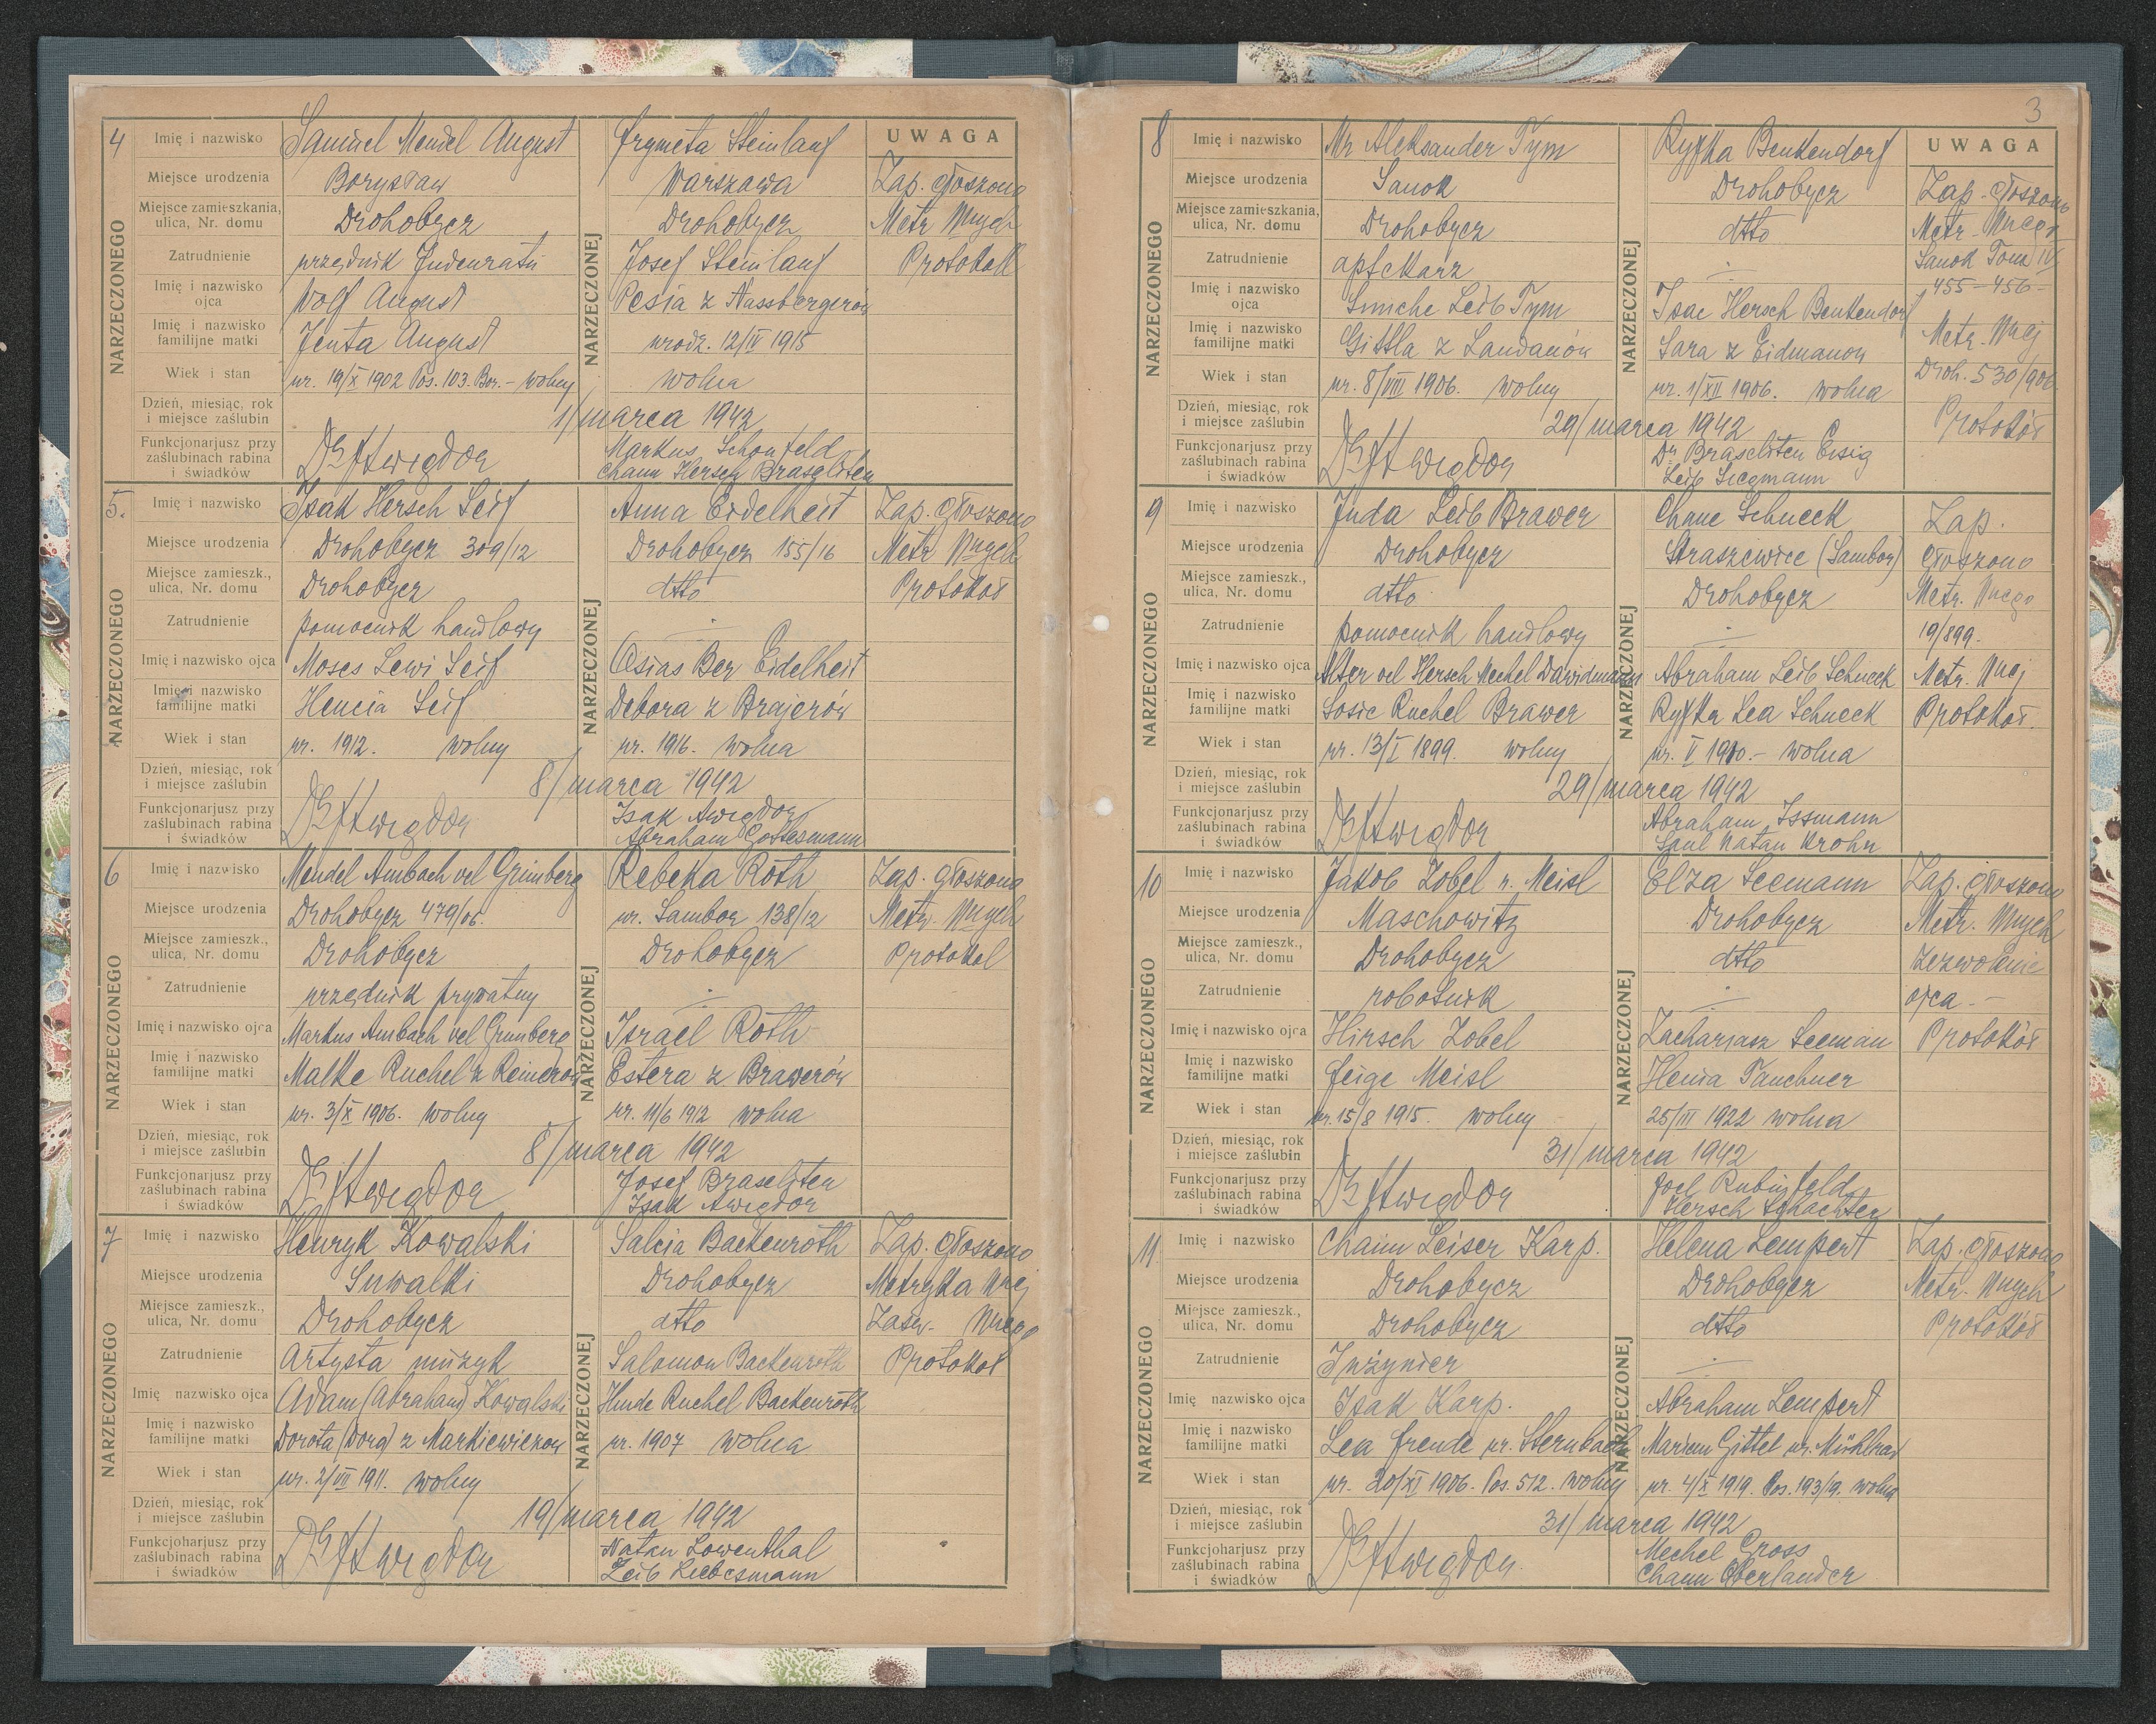 4
NARZECZONEGO
NARZECZONEJ
Imię i nazwisko Samuel Mendel August Frymeta Steinlauf UWAGA
Miejsce urodzenia Borysław Warszawa Zap. głoszono
Miejsce zamieszkania, ulica, Nr. domu Drohobycz Drohobycz Metr
Zatrudnienie urzędnik Judenratu Josef Steinlauf Protokoll
Imię i nazwisko ojca Wolf August Pesia z Nussbergerów
Imię i nazwisko familijne matki Jenta August urodz. 12/IV 1915
Wiek i stan ur. 19/X 1902 Pos. 103. Bor. - wolny wolna
Dzień, miesiąc, rok i miejsce zaślubin 1/marca 1942
Funkcjonarjusz przy zaślubinach rabina i świadków Awigdor Markus Schonfeld
Chaim Hersch Braseliten
5.
NARZECZONEGO
NARZECZONEJ
Imię i nazwisko Isak Hersch Seif Anna Eidelheit Zap. głoszono
Miejsce urodzenia Drohobycz 309/12 Drohobycz 155/16 Metr
Miejsce zamieszk., ulica, Nr. domu Drohobycz dtto Protokół
Zatrudnienie pomocnik handlowy
Imię i nazwisko ojca Moses Lewi Seif Osias Ber Eidelheit
Imię i nazwisko familijne matki Hencia Seif Debora z Brajerów
Wiek i stan ur. 1912. wolny ur. 1916. wolna
Dzień, miesiąc, rok i miejsce zaślubin 8/marca 1942
Funkcjonarjusz przy zaślubinach rabina i świadków Awigdor Isak Awigdor
Abraham Gottesmann
6
NARZECZONEGO
NARZECZONEJ
Imię i nazwisko Mendel Ambach vel Grünberg Rebeka Roth Zap. głoszono
Miejsce urodzenia Drohobycz 479/06. ur. Sambor 138/12 Metr.
Miejsce zamieszk., ulica, Nr. domu Drohobycz Drohobycz Protokol
Zatrudnienie urzędnik prywatny
Imię i nazwisko ojca Markus Ambach vel Grunberg Israel Roth
Imię i nazwisko familijne matki Malke Ruchel z Reinerów Estera z Brawerów
Wiek i stan ur. 3/X 1906. wolny ur. 11/6 1912 wolna
Dzień, miesiąc, rok i miejsce zaślubin 8/marca 1942
Funkcjonarjusz przy zaślubinach rabina i świadków Awigdor Josef Braseliten
Isak Awigdor
7
NARZECZONEGO
NARZECZONEJ
Imię i nazwisko Henryk Kowalski Salcia Backenroth Zap. głoszono
Miejsce urodzenia Suwalki Drohobycz Metryka
Miejsce zamieszk., ulica, Nr. domu Drohobycz dtto Zaśw.
Zatrudnienie Artysta muzyk Salomon Backenroth Protokoł
Imię nazwisko ojca Adam (Abraham) Kowalski Hinde Ruchel Backenroth
Imię i nazwisko familijne matki Dorota (Dora) z Markiewiczow ur. 1907 wolna
Wiek i stan ur. 2/VII 1911. wolny
Dzień, miesiąc, rok i miejsce zaślubin 19/marca 1942
Funkcjoharjusz przy zaślubinach rabina i świadków Awigdor Natan Lowenthal
Leib Liebesmann
3
8
NARZECZONEGO
NARZECZONEJ
Imię i nazwisko Mr Aleksander Tym Ryfka Benkendorf UWAGA
Miejsce urodzenia Sanok Drohobycz Zap. głoszono
Miejsce zamieszkania, ulica, Nr. domu Drohobycz dtto Metr.
Zatrudnienie aptekarz Sanok Tom IV
Imię i nazwisko ojca Simche Leib Tym Isac Hersch Benkendorf 455-456-
Imię i nazwisko familijne matki Gittla z Landauów Sara z Eidmanow Metr.
Wiek i stan ur. 8/VIII 1906. wolny ur. 1/XII 1906. wolna Droh. 530/906
Dzień, miesiąc, rok i miejsce zaślubin 29/marca 1942 Protokół
Funkcjonarjusz przy zaślubinach rabina i świadków Awigdor Dr Braseliten Eisig
Leib Siegmann
9
NARZECZONEGO
NARZECZONEJ
Imię i nazwisko Juda Leib Brawer Chane Schneck Zap.
Miejsce urodzenia Drohobycz Straszewice (Sambor) głoszono
Miejsce zamieszk., ulica, Nr. domu dtto Drohobycz Metr.
Zatrudnienie pomocnik handlowy 19/899.
Imię i nazwisko ojca Alter vel Hersch Mechel Dawidmann Abraham Leib Schneck Metr.
Imię i nazwisko familijne matki Sosie Ruchel Brawer Ryfka Lea Schneck Protokoł.
Wiek i stan ur. 13/I 1899. wolny ur. V 1910.- wolna
Dzień, miesiąc, rok i miejsce zaślubin 29/marca 1942
Funkcjonarjusz przy zaślubinach rabina i świadków Awigdor Abraham Issmann
Saul Natan Krohn
10
NARZECZONEGO
NARZECZONEJ
Imię i nazwisko Jakob Zobel r. Meisl Elza Seemann Zap. głoszono
Miejsce urodzenia Maschowitz Drohobycz Metr.
Miejsce zamieszk., ulica, Nr. domu Drohobycz dtto Zezwolenie
Zatrudnienie robotnik ojca.-
Imię i nazwisko ojca Hirsch Zobel Zachariasz Seeman Protokół
Imię i nazwisko familijne matki Feige Meisl Henia Tauchner
Wiek i stan ur. 15/8 1915. wolny 25/III 1922 wolna
Dzień, miesiąc, rok i miejsce zaślubin 31/marca 1942
Funkcjonarjusz przy zaślubinach rabina i świadków Awigdor Joel Rubinfeld
Hersch Schachter
11.
NARZECZONEGO
NARZECZONEJ
Imię i nazwisko Chaim Leiser Karp. Helena Lempert Zap. głoszono
Miejsce urodzenia Drohobycz Drohobycz Metr.
Miejsce zamieszk., ulica, Nr. domu Drohobycz dtto Protokół
Zatrudnienie Inżynier
Imię nazwisko ojca Isak Karp. Abraham Lempert
Imię i nazwisko familijne matki Lea Freude ur. Sternbach Mariem Gittel ur. Mühlrad
Wiek i stan ur. 20/XI 1906. Pos. 512. wolny ur. 4/X 1919. Pos. 193/19. wolna
Dzień, miesiąc, rok i miejsce zaślubin 31/marca 1942
Funkcjoharjusz przy zaślubinach rabina i świadków Awigdor. Mechel Gross
Chaim Oberlander